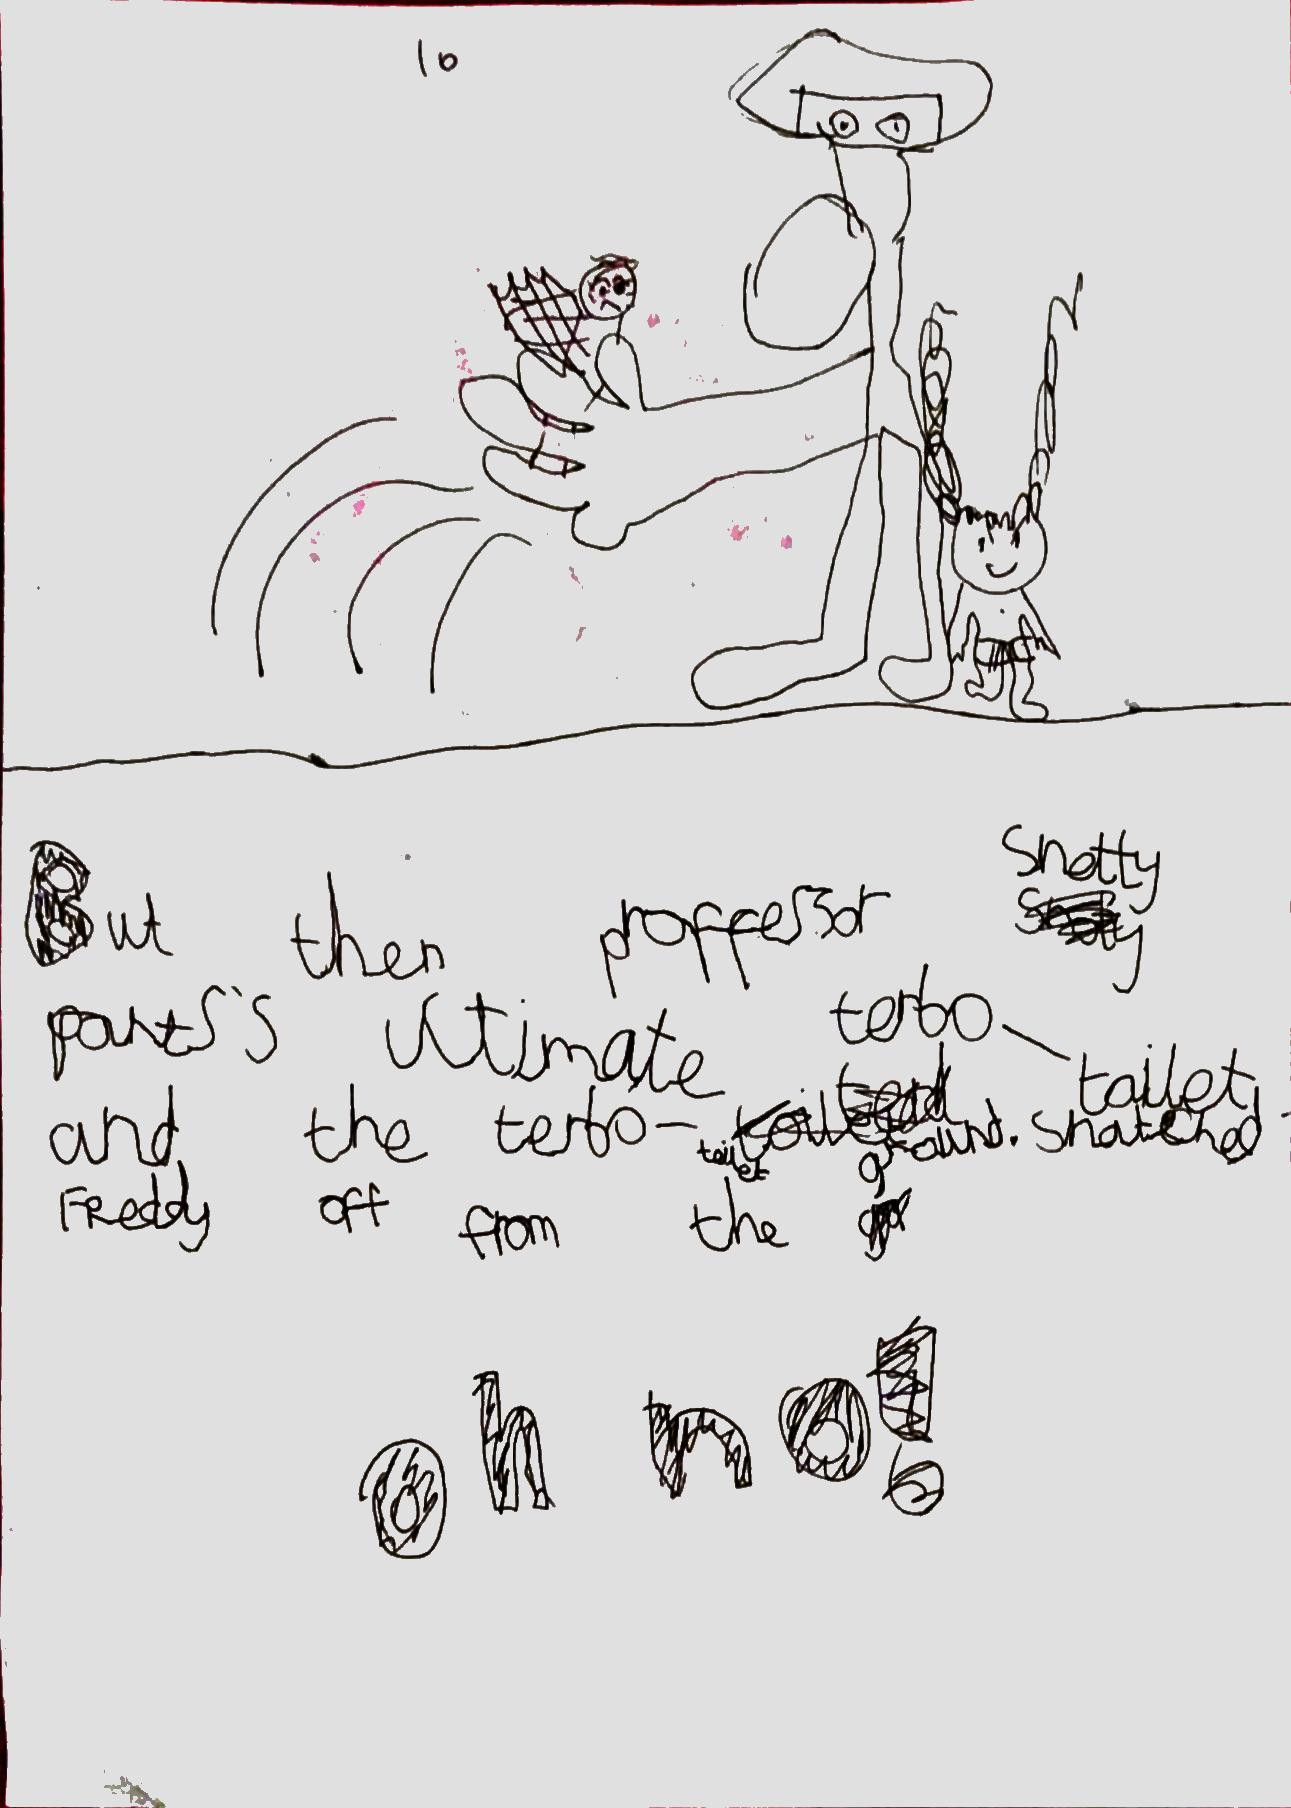 10
But then proffessor Snotty
pants's Ultimate terbo-tailet,
and the terbo-tailet snatched
Freddy off from the ground.
oh no!